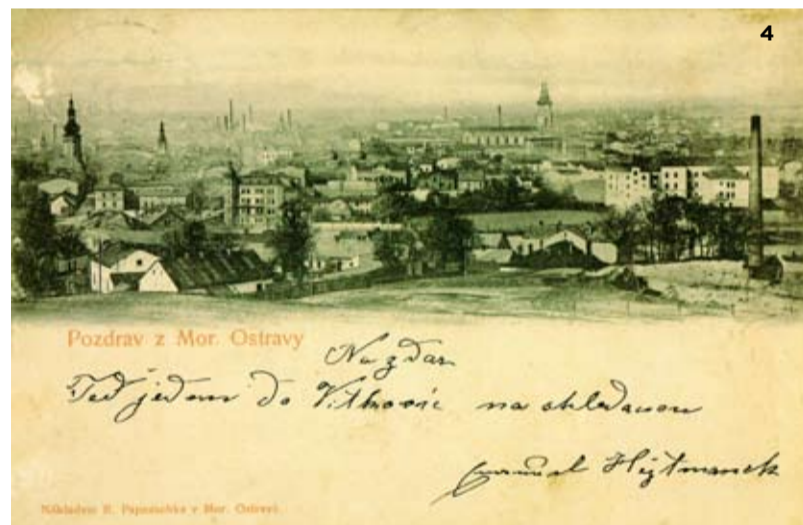 4
Pozdrav z Mor. Ostravy
Na zdar
Teď jedem do Vítkovic na shledanou
Hejtmanek
Nákladem R. Papauschka v Mor. Ostravě.